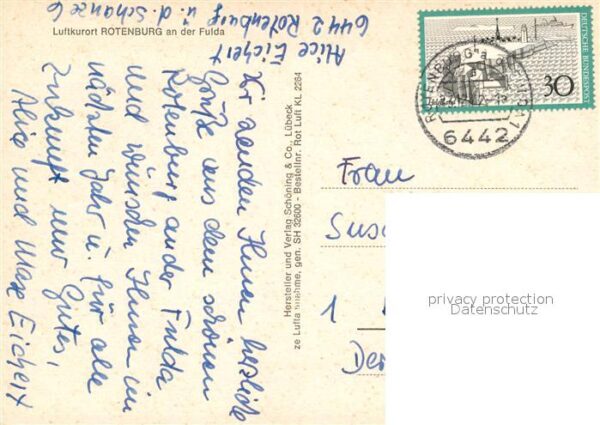 Luftkurort ROTENBURG an der Fulda
Alice Eichert
6442 Rotenburg
u. d. Schanze 6
Wir senden Ihnen herzliche
Grüße aus dem schönen
Rotenburg an der Fulda
und wünschen Ihnen im
nächsten Jahr u. für alle
Zukunft nur Gutes,
Alice und Max Eichert
Hersteller und Verlag Schöning & Co., Lübeck
ze Lufta nahme, gen. SH 32600 - Bestellnr. Rot Luft KL 2284
DEUTSCHE BUNDESPOST
30
ROTENBURG
6442
Frau
Sus
1
Der
privacy protection
Datenschutz